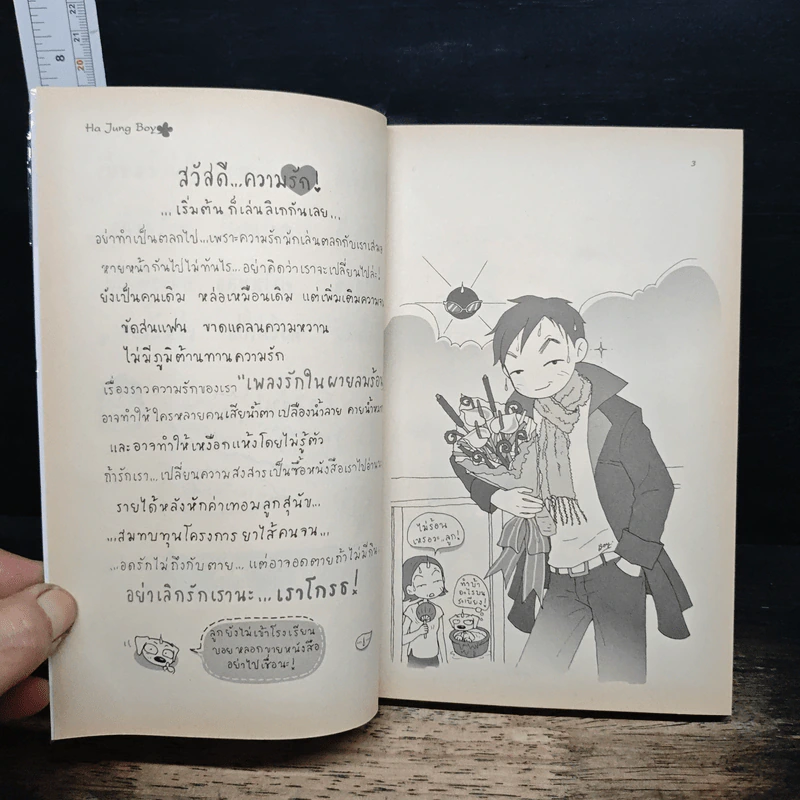 Ha Jung Boy
สวัสดี...ความรัก!
...เริ่มต้น ก็เล่นลิเกกันเลย...
อย่าทำเป็นตลกไป...เพราะความรักมักเล่นตลกกับเราเสมอ
หายหน้ากันไปไม่ทันไร...อย่าคิดว่าเราจะเปลี่ยนไปล่ะ!
ยังเป็นคนเดิม หล่อเหมือนเดิม แต่เพิ่มเติมความจน
ขัดสนแฟน ขาดแคลนความหวาน
ไม่มีภูมิต้านทานความรัก
เรื่องราวความรักของเรา "เพลงรักในผายลมร้อน
อาจทำให้ใครหลายคนเสียน้ำตา เปลืองน้ำลาย คายน้ำหมาก
และอาจทำให้เหงือกแห้งโดยไม่รู้ตัว
ถ้ารักเรา...เปลี่ยนความสงสารเป็นซื้อหนังสือเราไปอ่านนะ
รายได้หลังหักค่าเทอมลูกสุนัข...
...สมทบทุนโครงการ ยาไส้คนจน...
...อดรักไม่ถึงกับตาย... แต่อาจอดตายถ้าไม่มีกิน...
อย่าเลิกรักเรานะ... เราโกรธ!
ลูกยังไม่เข้าโรงเรียน
บอยหลอกขายหนังสือ
อย่าไปเชื่อนะ!
3
ไม่ร้อน
เหรอะ..ลูก!
ทำบ้า
อะไรบน
ระเบียง!